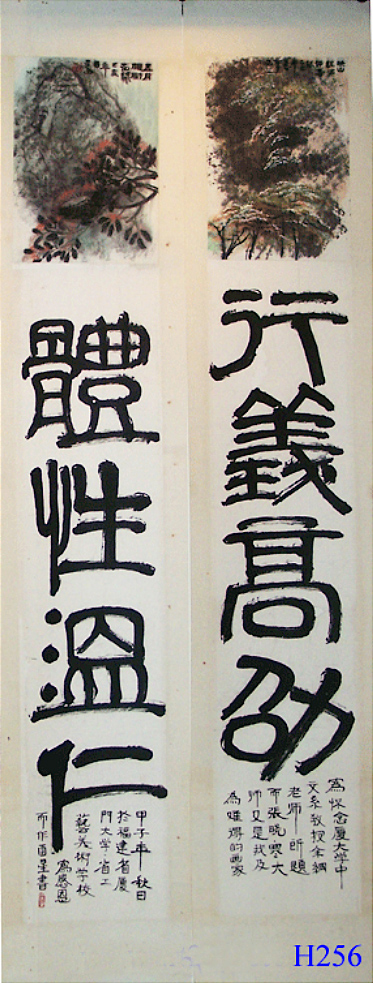 行義高劭
為怀念厦大学中
文系教授余綱
老师 所題
而張曉寒大
师又是我及
為难得的画家
體性溫仁
甲子年秋日
於福建省厦
門大学省工
藝美術学校
為感恩
而作 書
H256